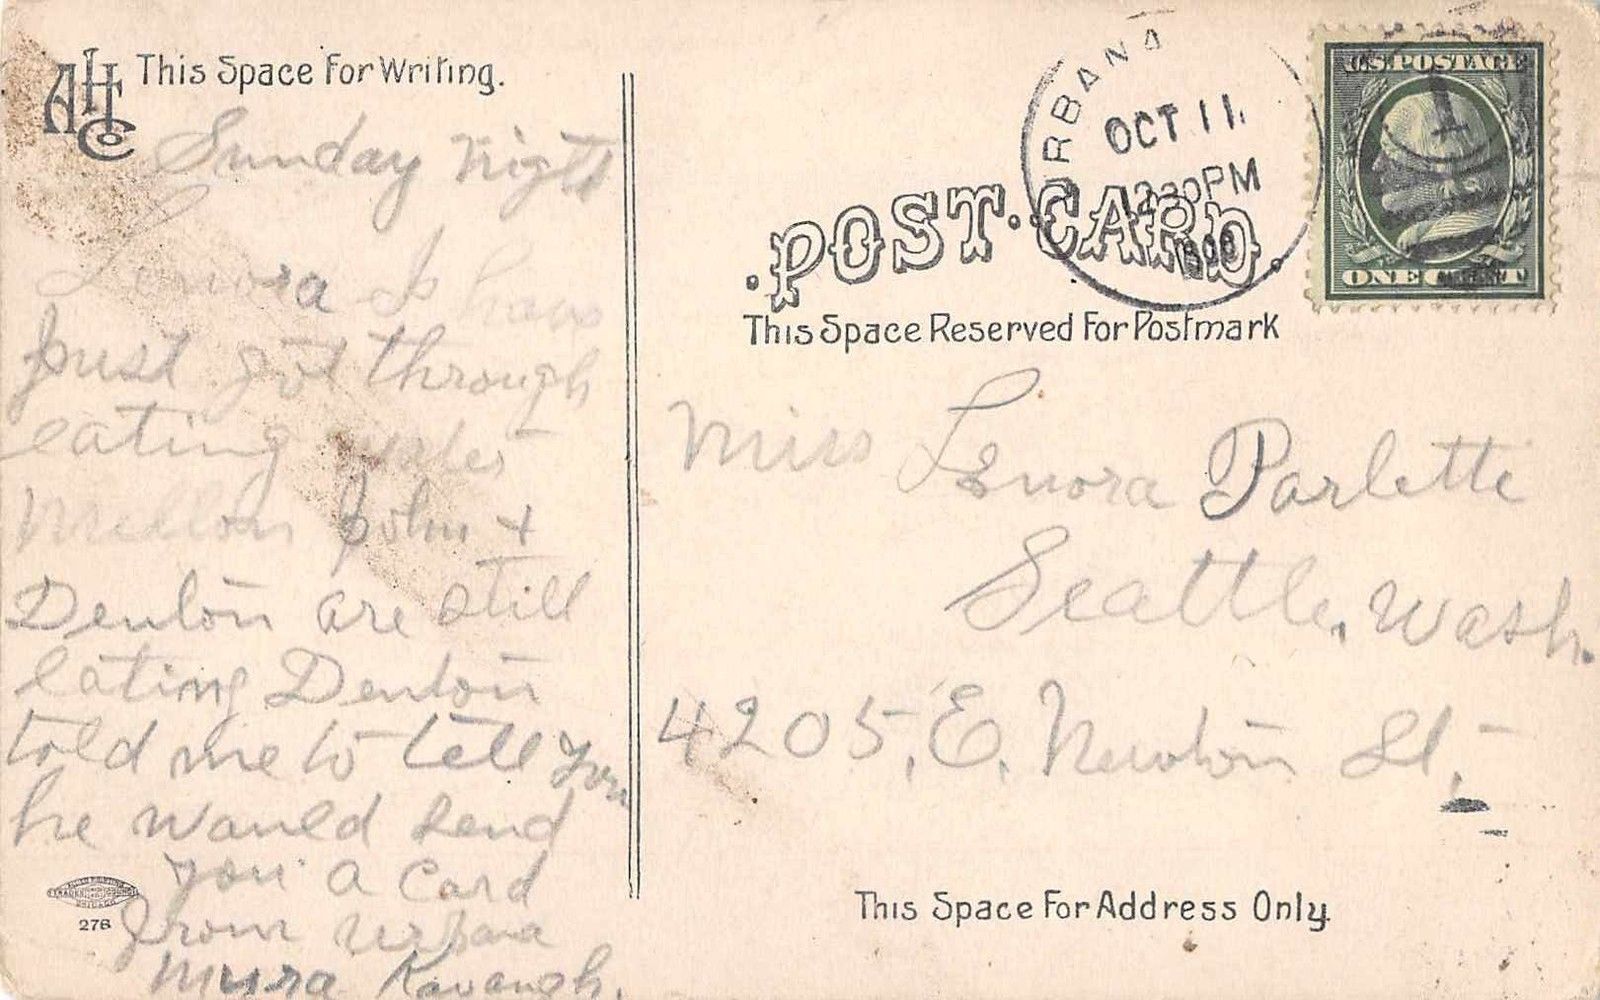 AHCo This Space For Writing.
Sunday Night
Lenora I have
just got through
eating water
mellon John +
Denton are still
eating Denton
told me to tell you
he would send
you a card
from Urbana
Mura Kavanagh.
276
URBANA
OCT 11
12 30 PM
U.S. POSTAGE
1
ONE CENT 1
POST CARD
This Space Reserved For Postmark
Miss Lenora Parlette
Seattle, Wash.
4205, E. Newton St.
This Space For Address Only.